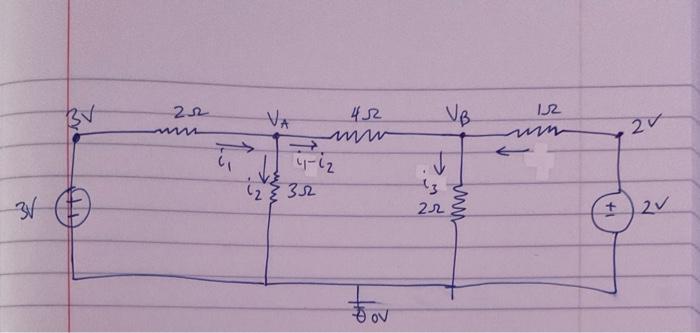 3V 2Ω VA 4Ω VB 1Ω 2V
i1 i1-i2
i2 3Ω i3
3V 2Ω ± 2V
0V